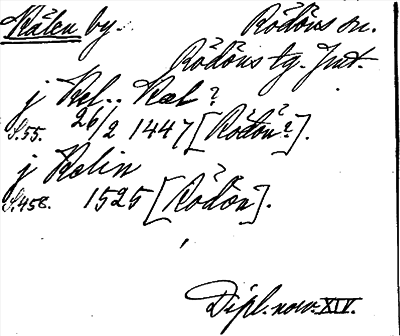 Kälen by. Rödöns sn.
Rödöns tg. Jmt.
j Kel.. Kæl ?
S.55. 26/2 1447 [Rödön?].
j Kelin
S.458. 1525 [Rödön].
Dipl. norv. XIV.